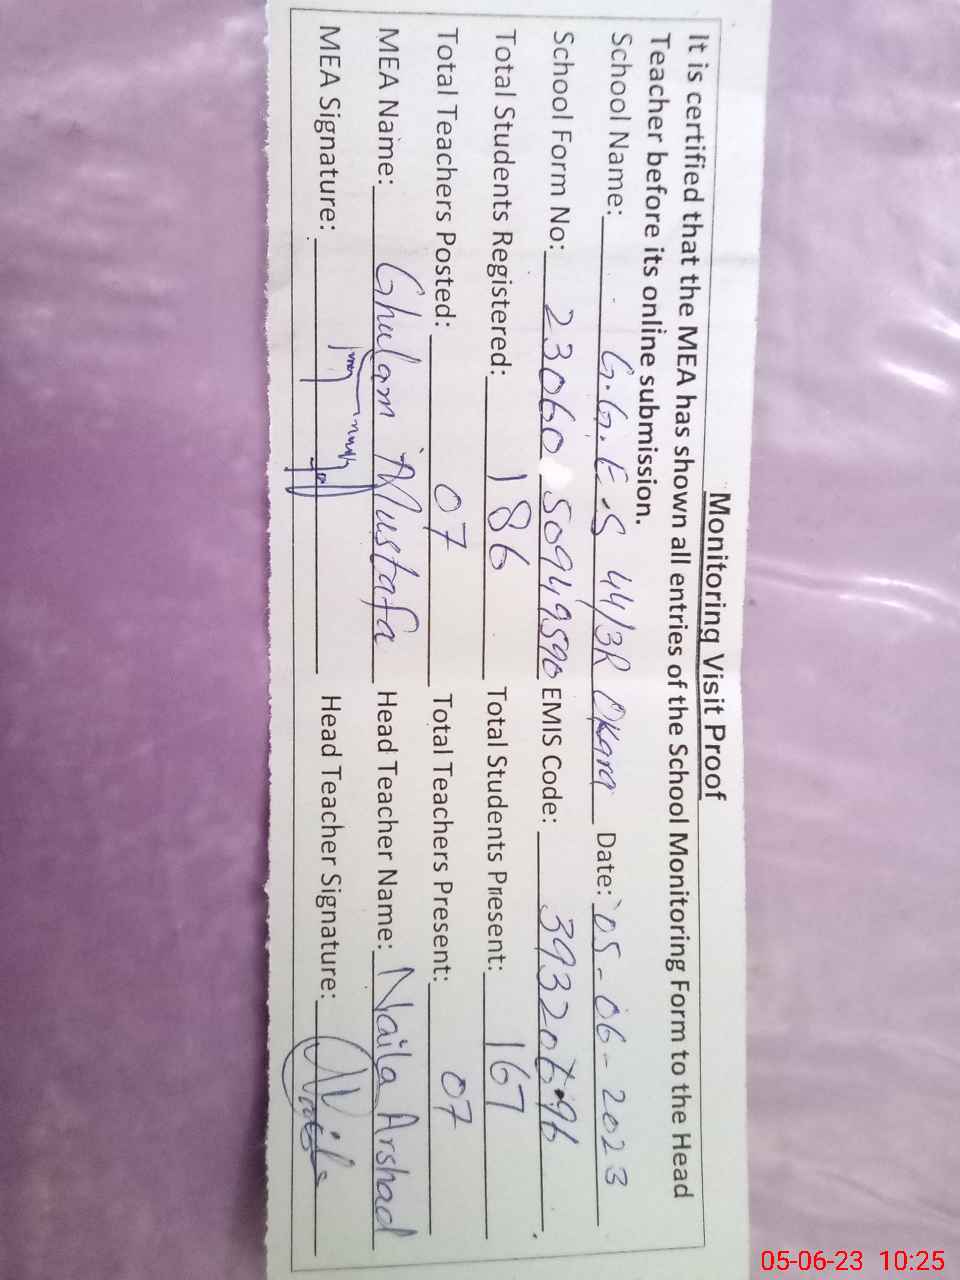 Monitoring Visit Proof
It is certified that the MEA has shown all entries of the School Monitoring Form to the Head
Teacher before its online submission.
School Name: G.G.E.S 44/3R Okara Date: 05-06-2023
School Form No: 23060 50949590 EMIS Code: 39320696
Total Students Registered: 186 Total Students Present: 167
Total Teachers Posted: 07 Total Teachers Present: 07
MEA Name: Ghulam Mustafa Head Teacher Name: Naila Arshad
MEA Signature: Head Teacher Signature: Naila
05-06-23 10:25